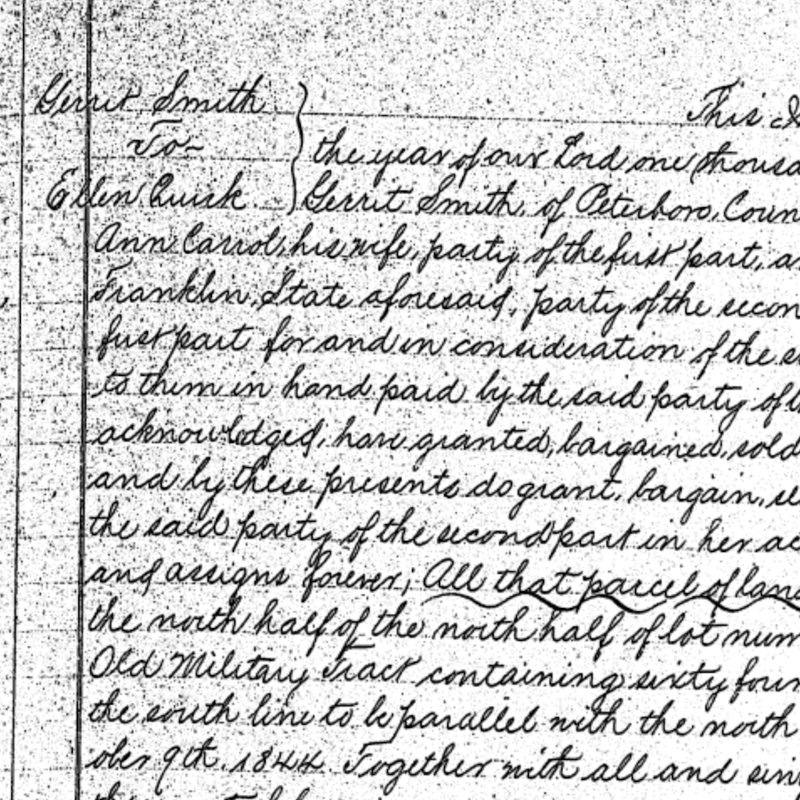 Gerrit Smith
This
-To-
the year of our Lord one thousa
Ellen Quick
Gerrit Smith, of Peterboro, Coun
Ann Carrol, his wife, party of the first part, a
Franklin, State aforesaid, party of the secon
first part for and in consideration of the s
to them in hand paid by the said party of t
acknowledged, have granted, bargained, sold
and by these presents do grant, bargain, se
the said party of the second part in her ac
and assigns forever; All that parcel of lan
the north half of the north half of lot num
Old Military Tract containing sixty four
the south line to be parallel with the north
ober 9th 1844 Together with all and sin